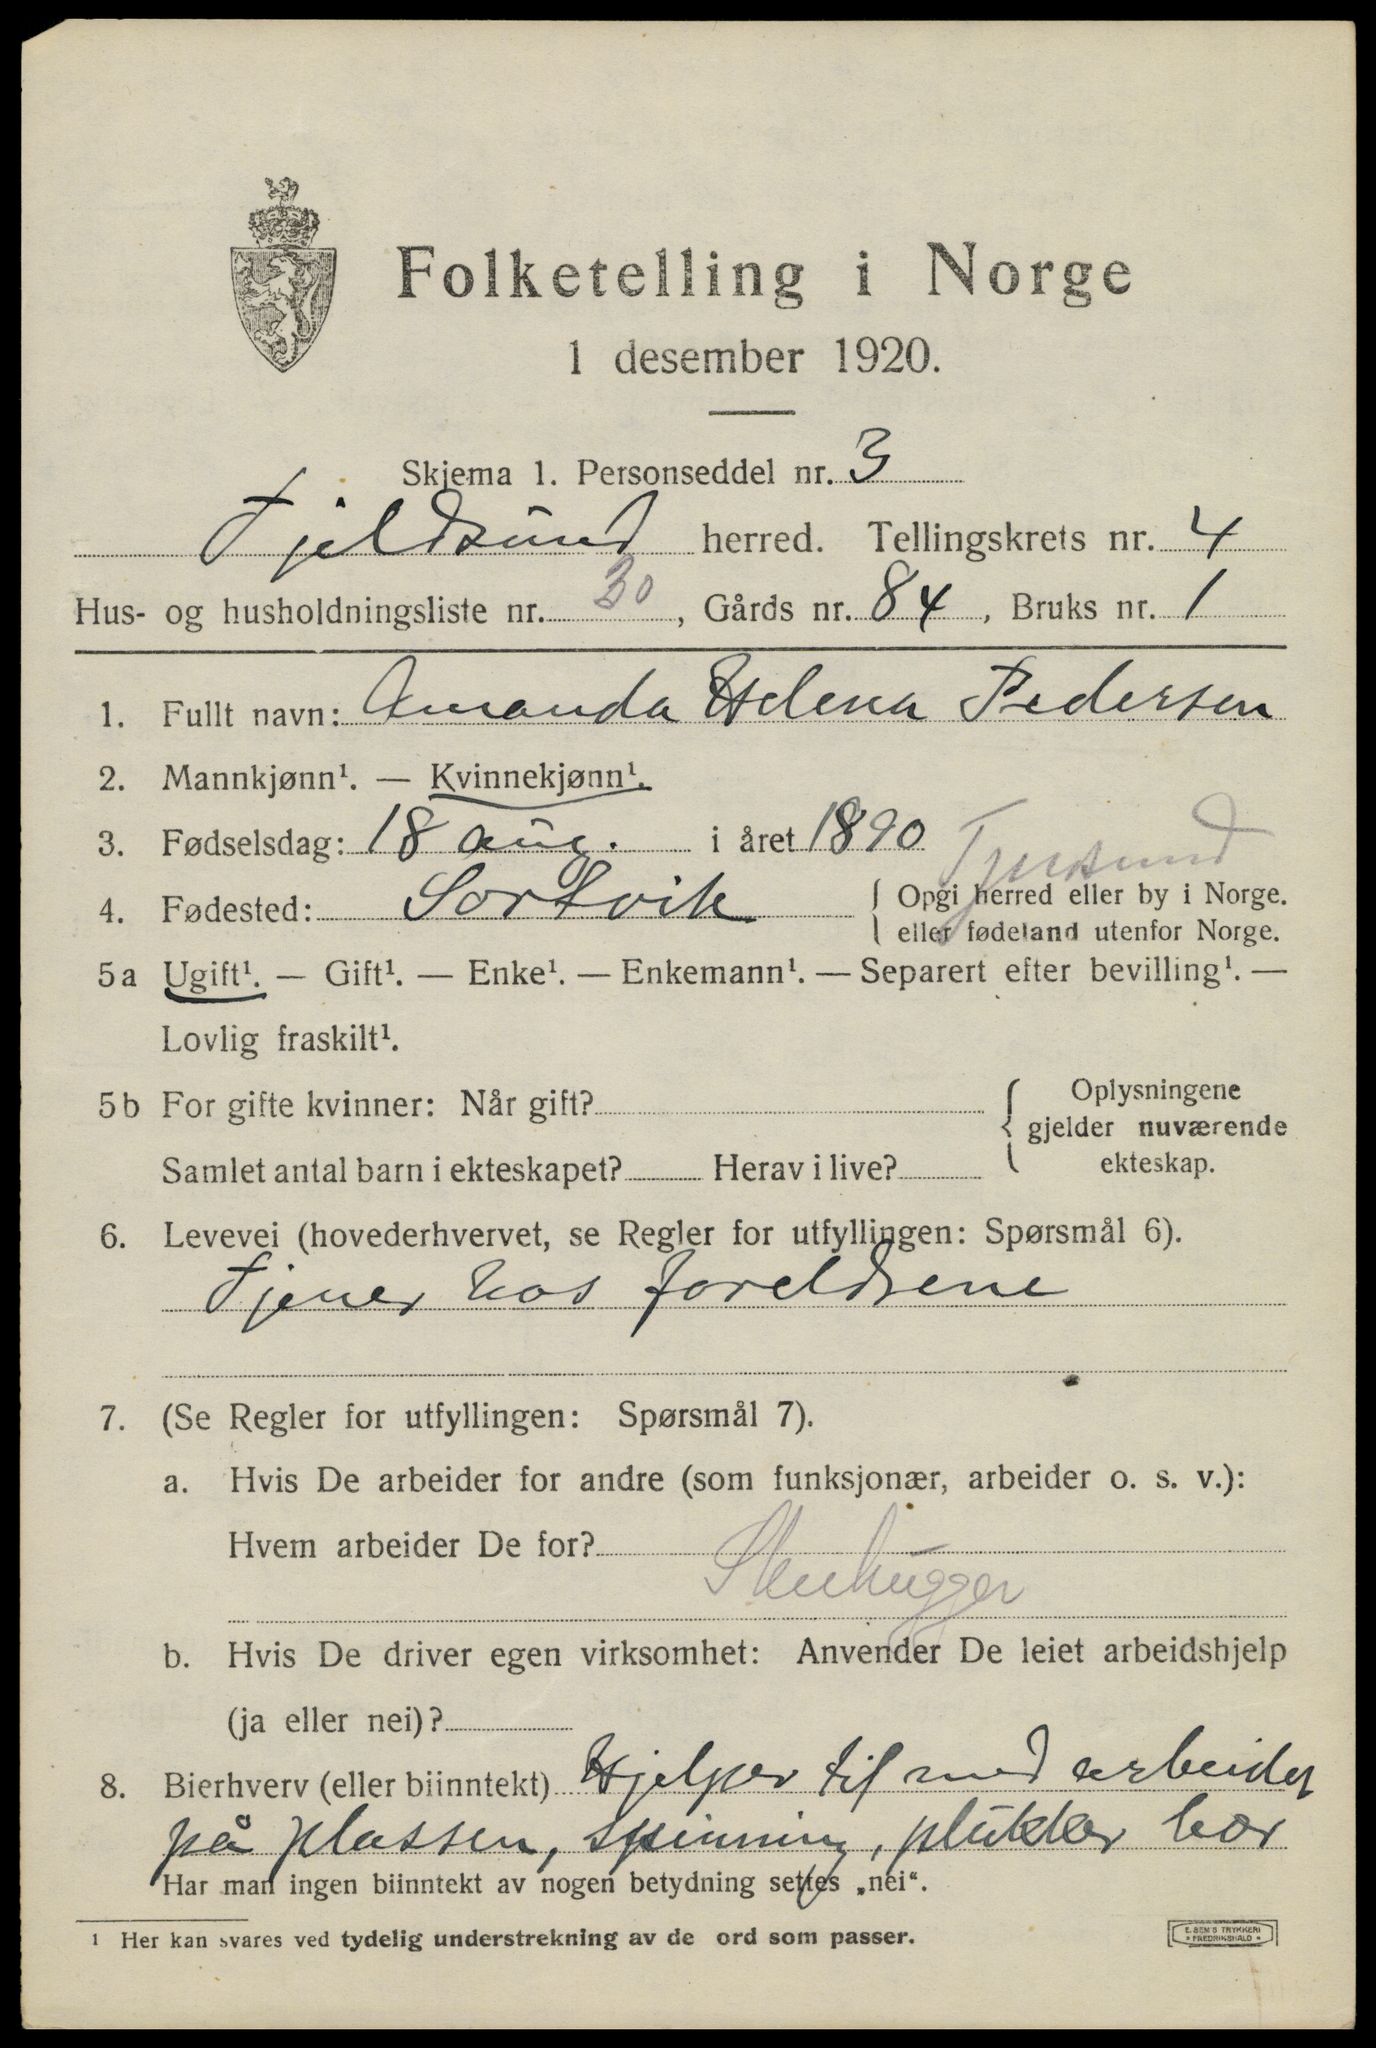 Folketelling i Norge
1 desember 1920.
Skjema 1. Personseddel nr. 3
Fjeldsund herred. Tellingskrets nr. 4
Hus- og husholdningsliste nr. 30, Gårds nr. 84, Bruks nr. 1
1. Fullt navn: Amanda Helena Pedersen
2. Mannkjønn¹. — Kvinnekjønn¹.
3. Fødselsdag: 18 aug. i året 1890
Tjeldsund
4. Fødested: Sortvik { Opgi herred eller by i Norge.
eller fødeland utenfor Norge.
5a Ugift¹. — Gift¹. — Enke¹. — Enkemann¹. — Separert efter bevilling¹. —
Lovlig fraskilt¹.
5b For gifte kvinner: Når gift? { Oplysningene
gjelder nuværende
Samlet antal barn i ekteskapet? Herav i live? ekteskap.
6. Levevei (hovederhvervet, se Regler for utfyllingen: Spørsmål 6).
Tjener hos foreldrene
7. (Se Regler for utfyllingen: Spørsmål 7).
a. Hvis De arbeider for andre (som funksjonær, arbeider o. s. v.):
Hvem arbeider De for?
Stenhugger
b. Hvis De driver egen virksomhet: Anvender De leiet arbeidshjelp
(ja eller nei)?
8. Bierhverv (eller biinntekt) Hjelper til med arbeidet
på plassen, spinning, plukker bær
Har man ingen biinntekt av nogen betydning settes „nei“.
1 Her kan svares ved tydelig understrekning av de ord som passer.
E. SEM'S TRYKKERI
* FREDRIKSHALD *